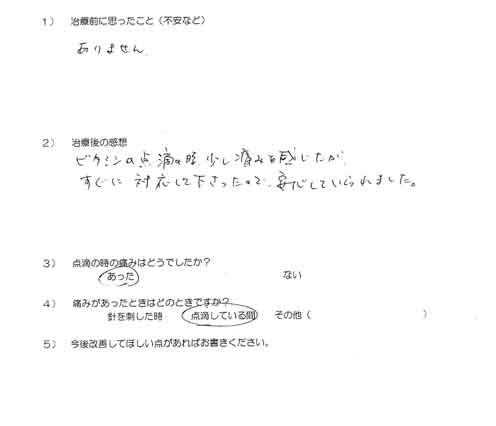 1） 治療前に思ったこと（不安など）
ありません.
2） 治療後の感想
ビタミンの点滴の時、少し痛みを感じたが、
すぐに対応して下さったので、安心していられました。
3） 点滴の時の痛みはどうでしたか？
あった ない
4） 痛みがあったときはどのときですか？
針を刺した時 点滴している間 その他（ ）
5） 今後改善してほしい点があればお書きください。